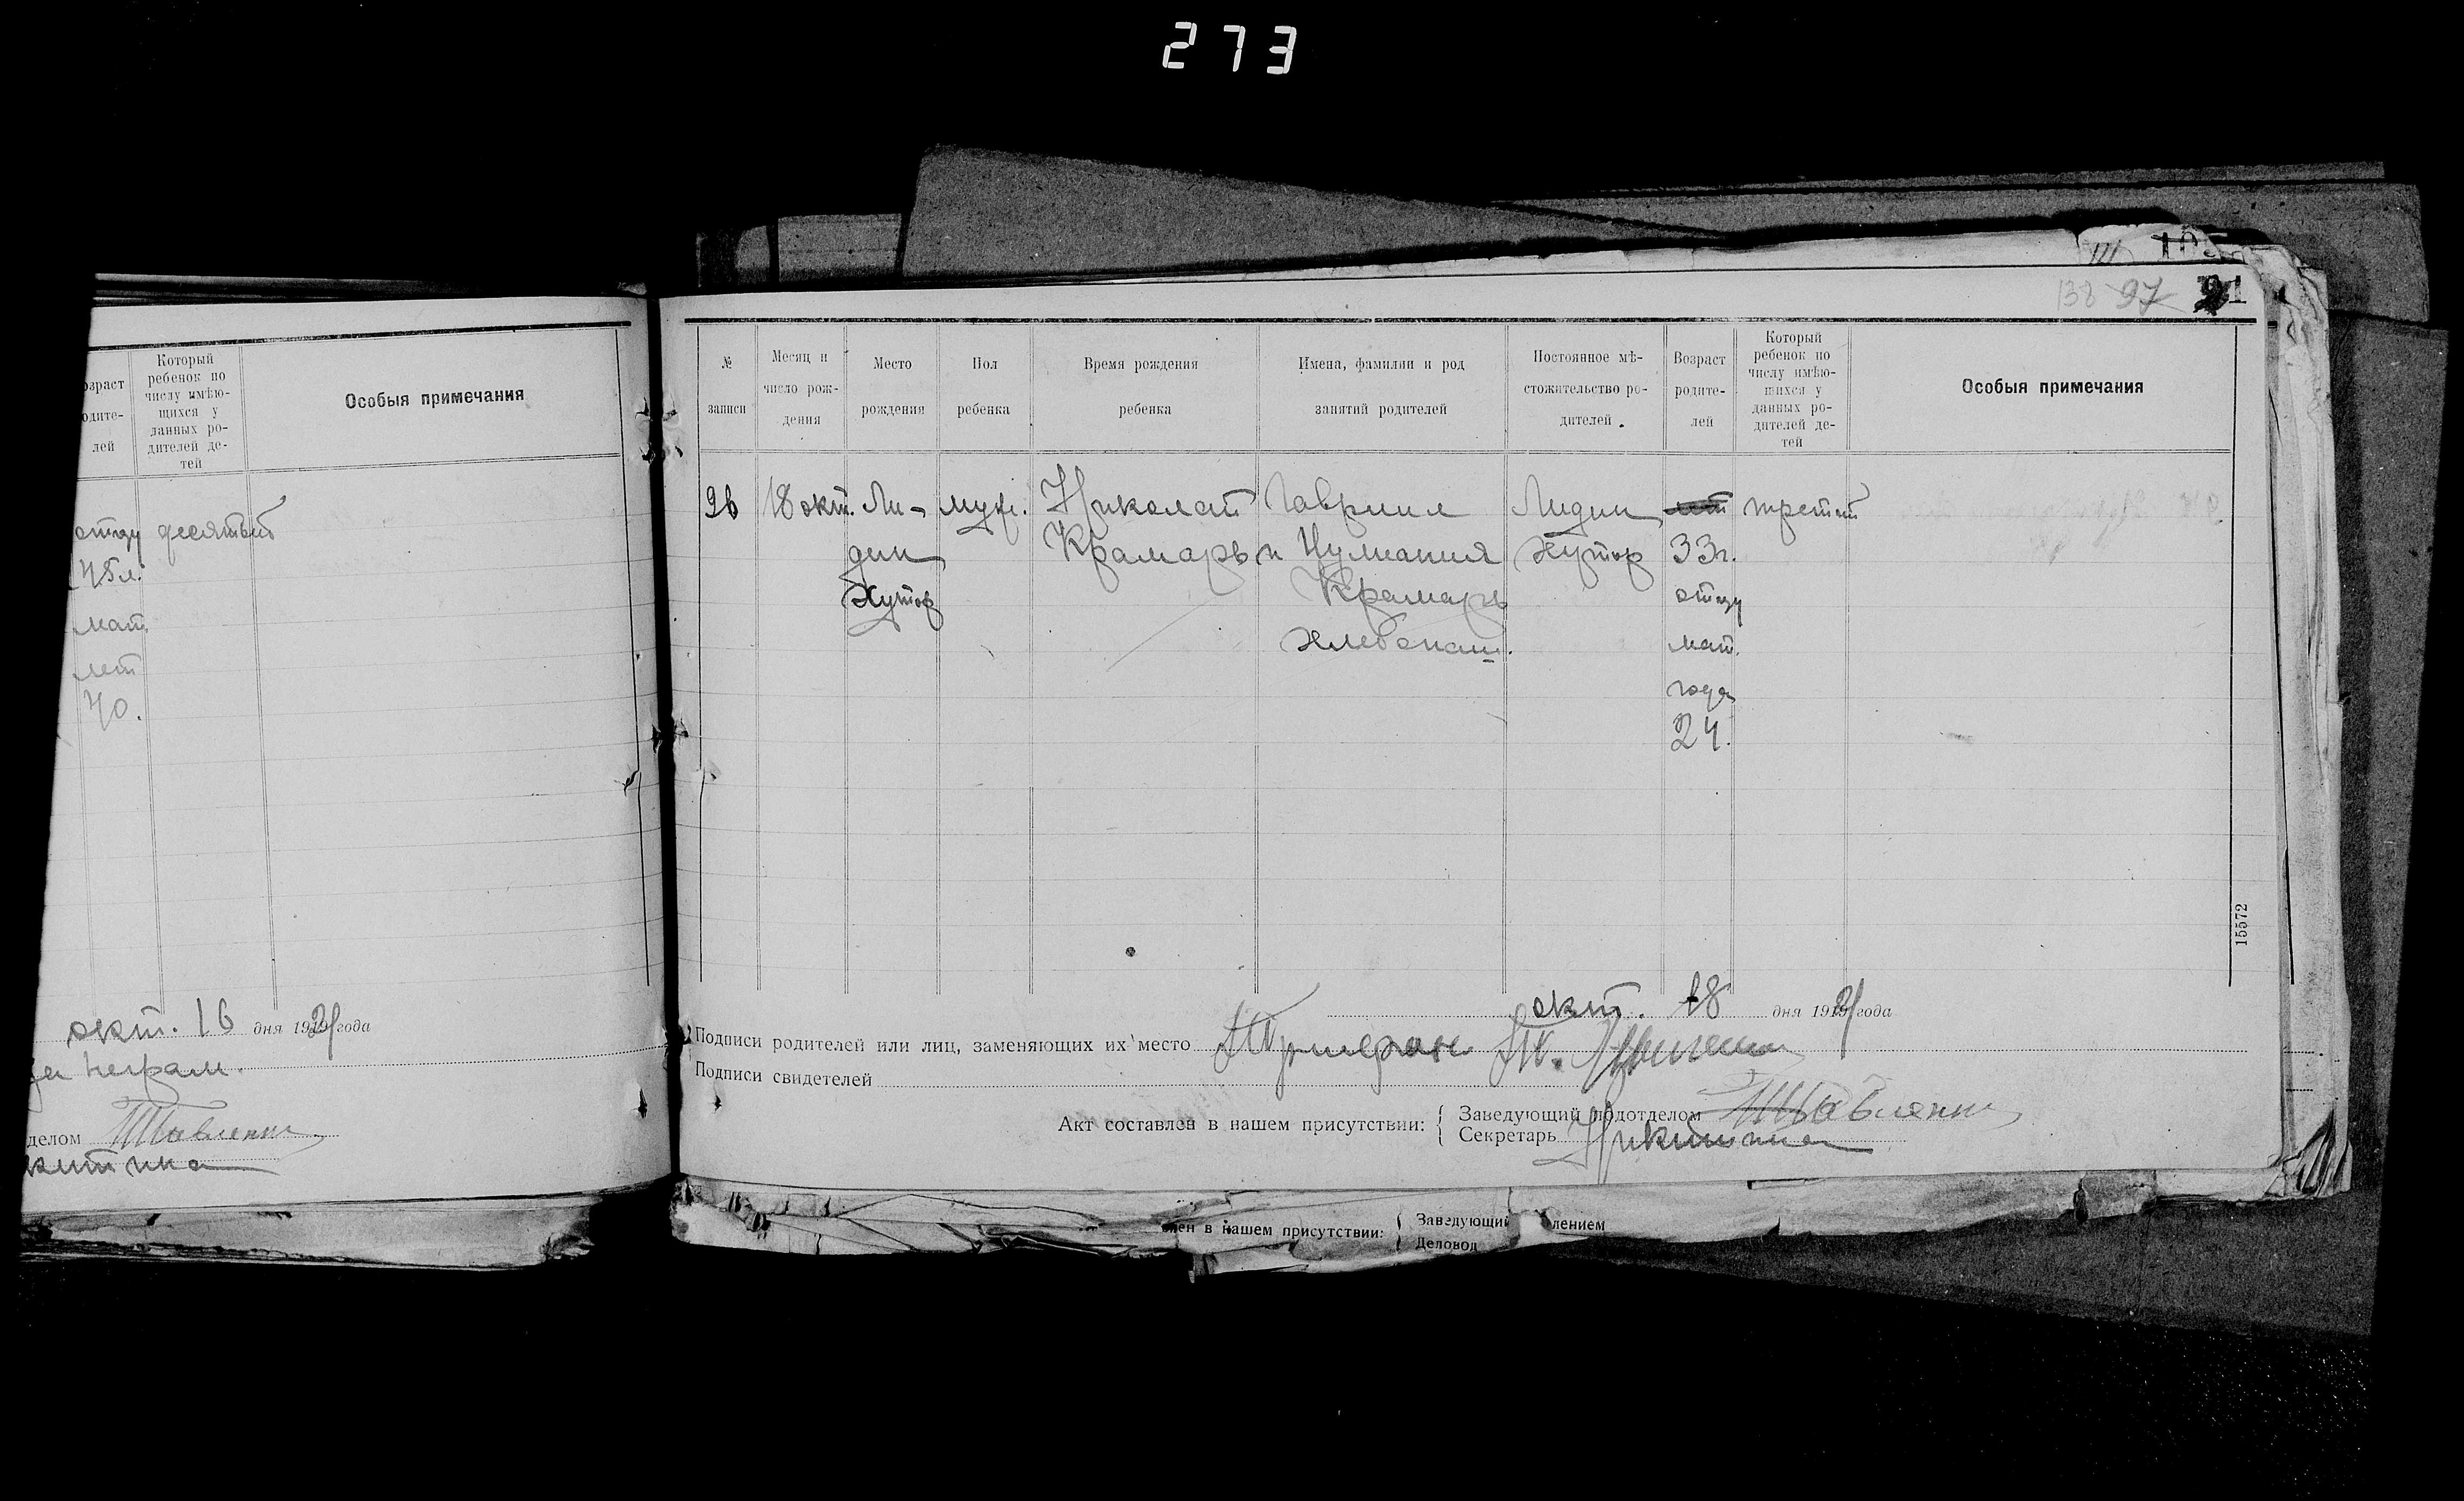 273
138 97 91
озраст
одите-
лей
Который
ребенок по
числу имѣю-
щихся у
данных ро-
дителей де-
тей
Особыя примечания
отцу десятый
45 л.
мат.
лет
40.
окт. 16 дня 1921 года
неграм.
делом
китина
№
записи
Месяц и
число рож-
дения
Место
рождения
Пол
ребенка
Время рождения
ребенка
Имена, фамилии и род
занятий родителей
Постоянное мѣ-
стожительство ро-
дителей
Возраст
родите-
лей
Который
ребенок по
числу имѣю-
щихся у
данных ро-
дителей де-
тей
Особыя примечания
18 окт. Ли- муж. Николай Гавриил Лидин лет третий
дин Крамарь и Крамарь хутор 33 г.
Хутор отцу
хлебопаш. мат.
года
24.
15572
окт. 18 дня 1921 года
Подписи родителей или лиц, заменяющих их место
Подписи свидетелей
Акт составлен в нашем присутствии:
Заведующий подотделом
Секретарь Никитина
лен в нашем присутствии:
Заведующий лением
Деловод